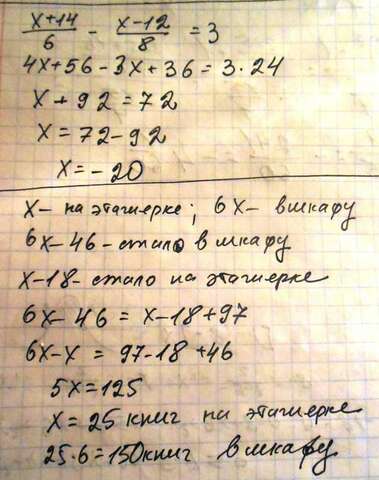 x+14/6 - x-12/8 = 3
4x+56-3x+36=3·24
x+92=72
x=72-92
x=-20
x- на этажерке; 6x- в шкафу
6x-46- стало в шкафу
x-18- стало на этажерке
6x-46 = x-18+97
6x-x = 97-18+46
5x=125
x=25 книг на этажерке
25·6=150 книг в шкафу